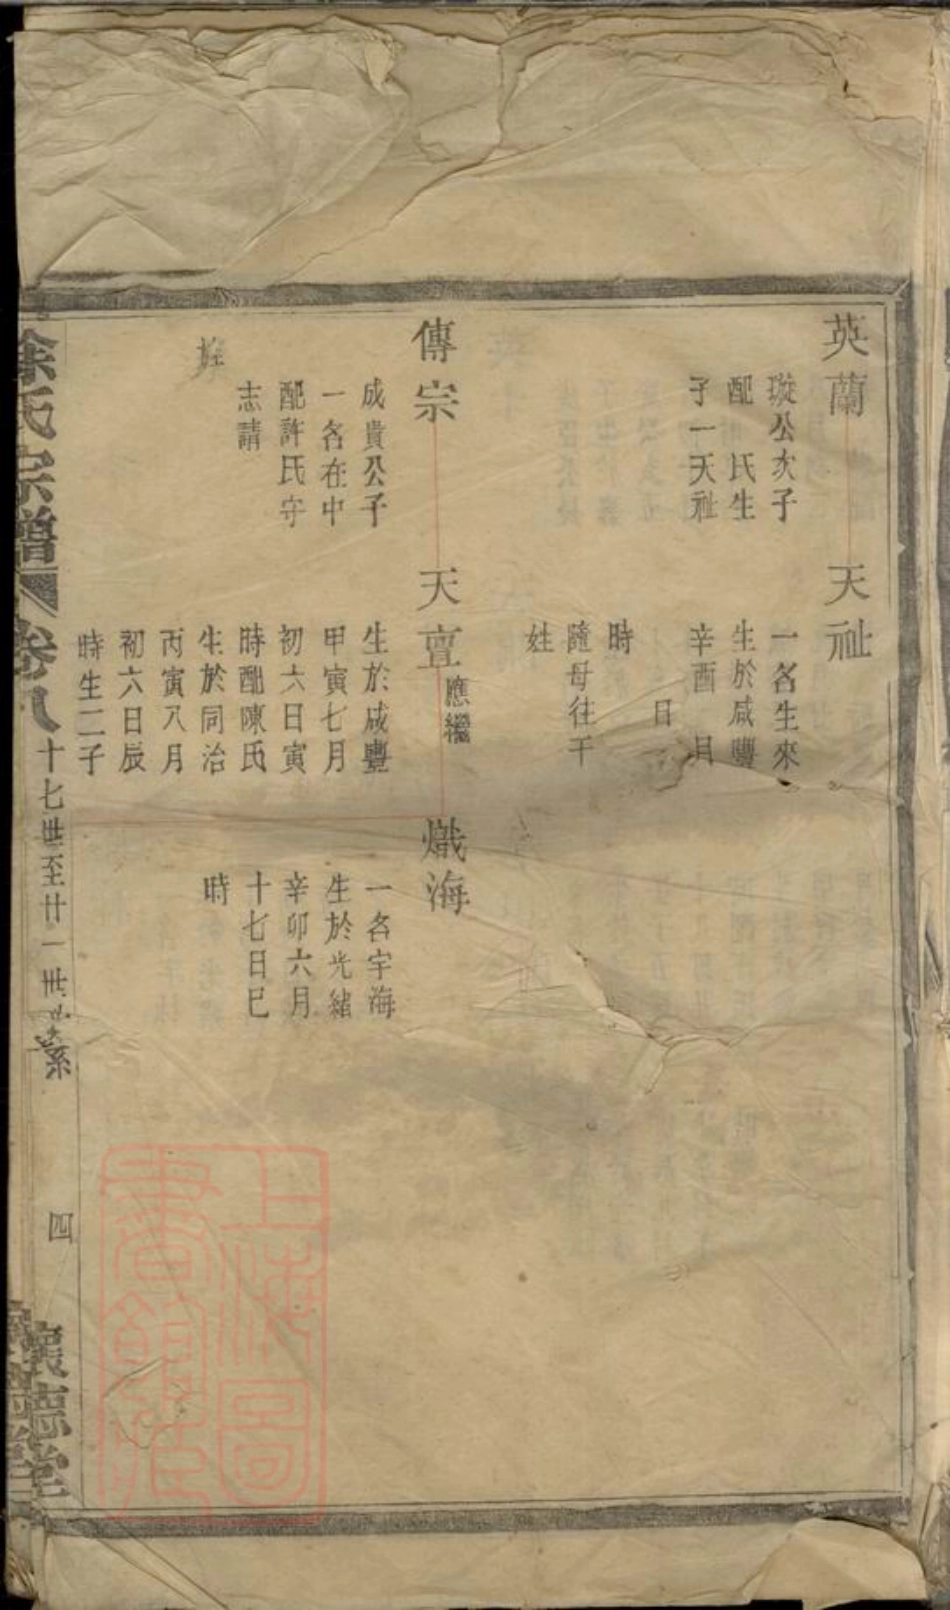 英蘭
璇公次子
配　氏生
子一天祉
天祉
一名生來
生於咸豐
辛酉　月
日
時
隨母往干
姓
傳宗
成貴公子
一名在中
配許氏守
志請
旌
天亶
應繼
生於咸豐
甲寅七月
初六日寅
時配陳氏
生於同治
丙寅八月
初六日辰
時生二子
熾海
一名宇海
生於光緒
辛卯六月
十七日巳
時
徐氏宗譜
卷八
十七世至廿一世世系
四
懷德堂
上海圖書館藏